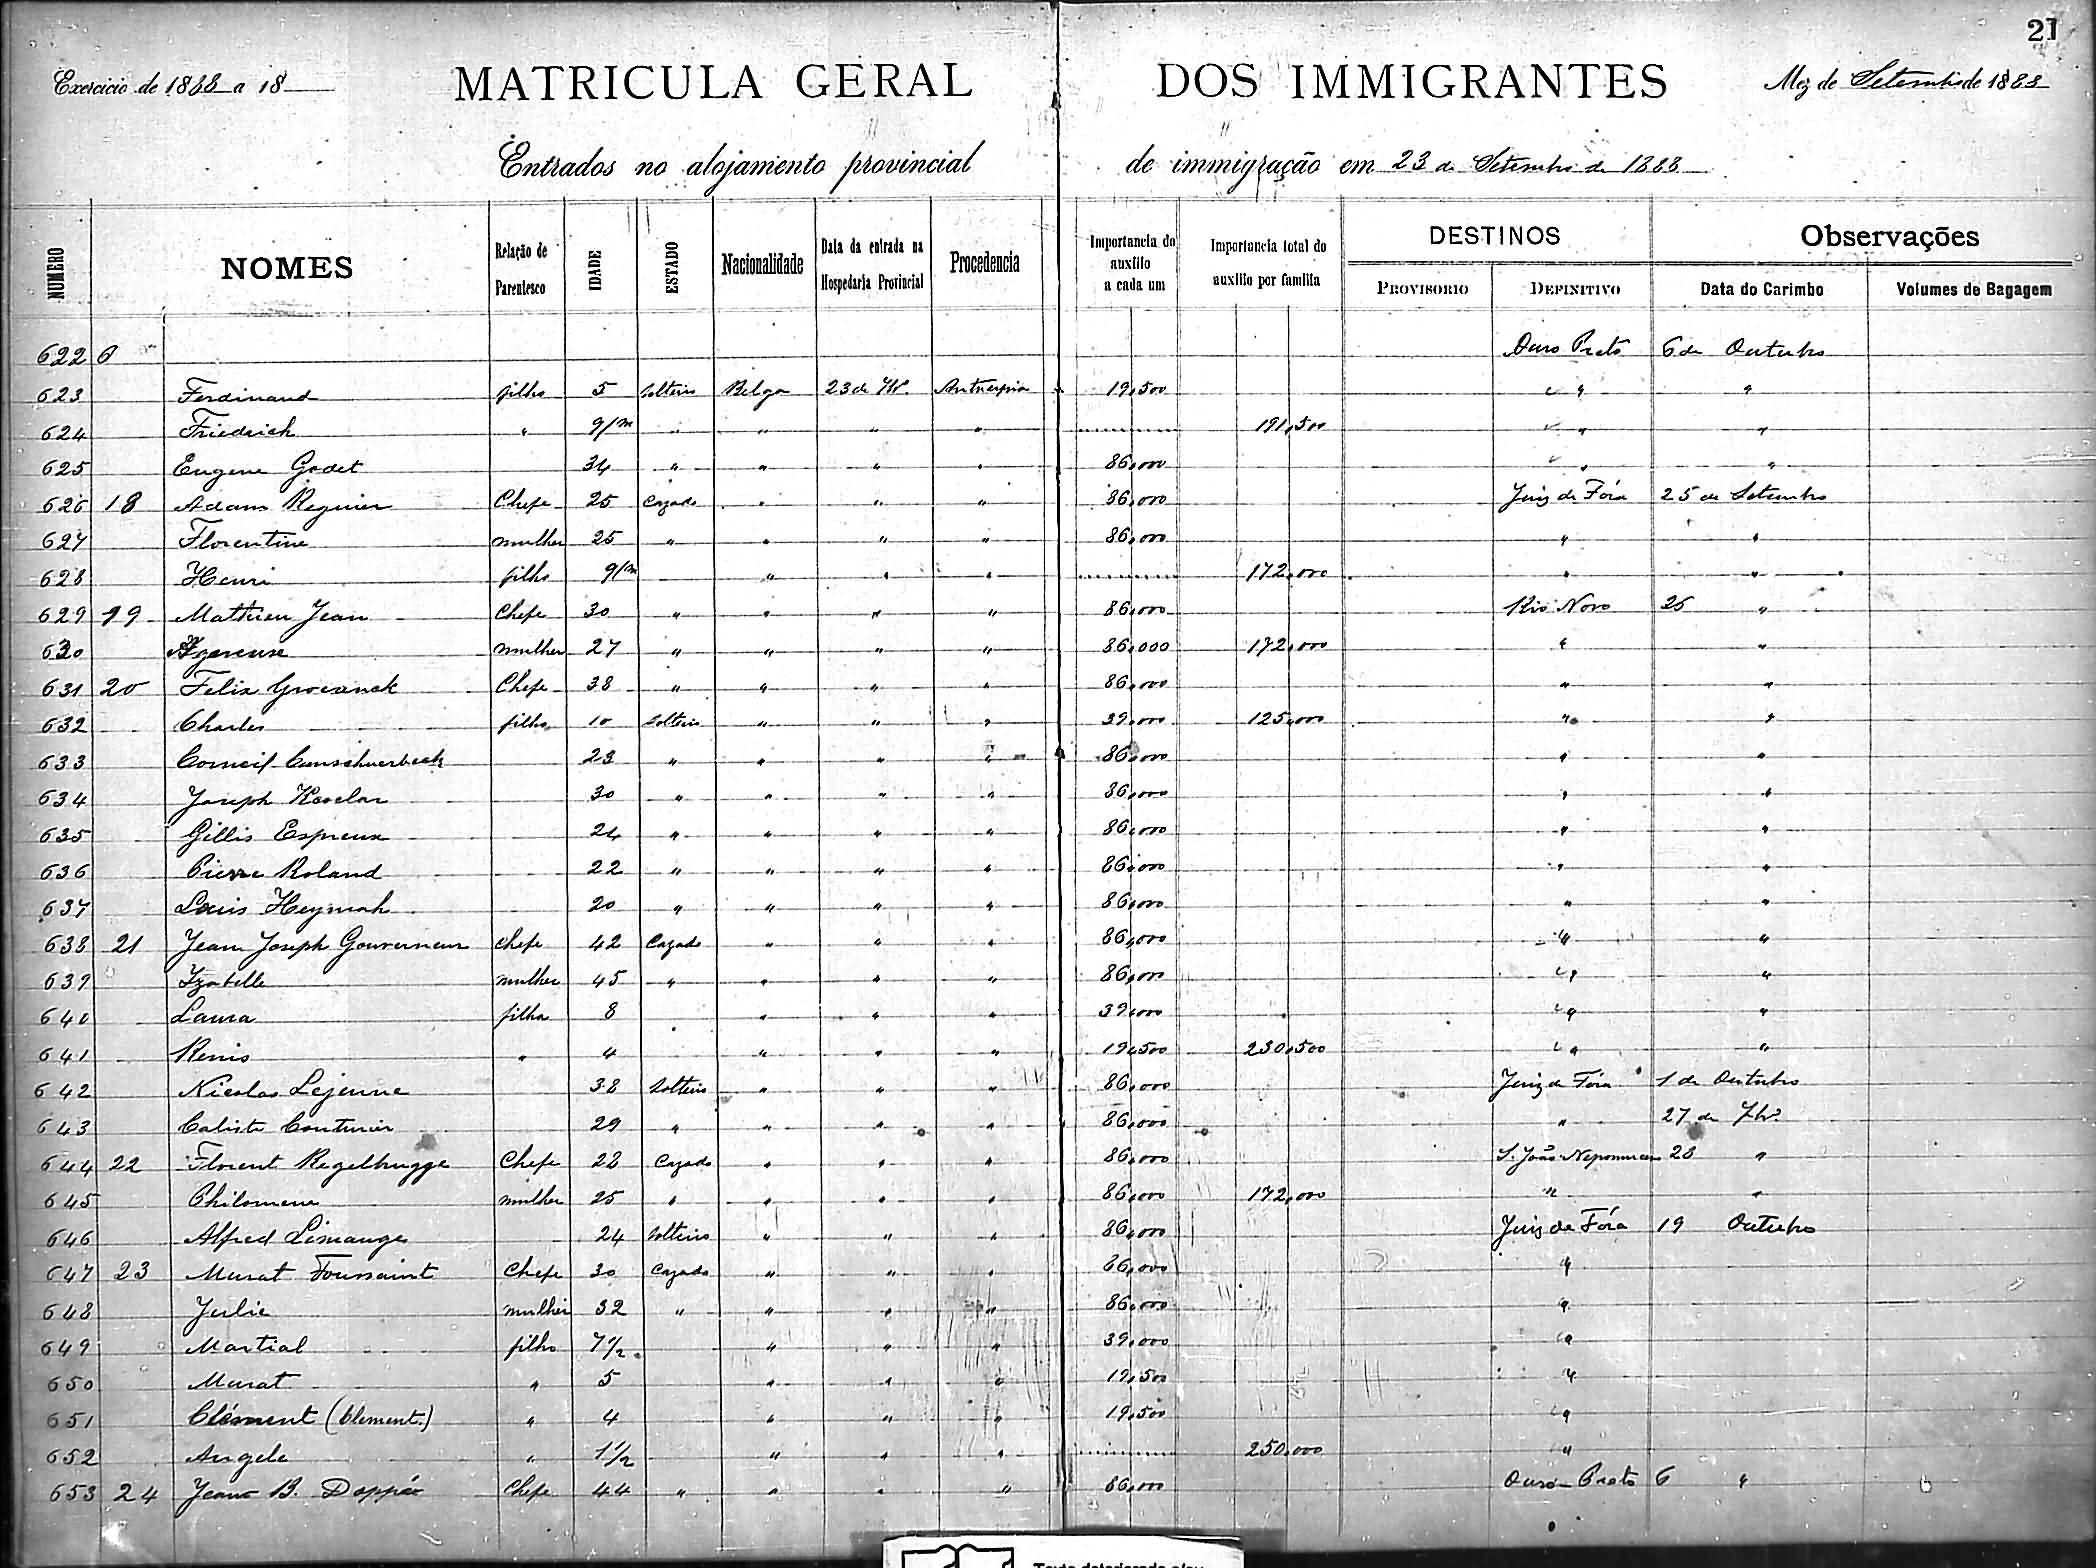 21
Exercicio de 1888 a 18
MATRICULA GERAL DOS IMMIGRANTES
Mez de Setembro de 1888
Entrados no alojamento provincial de immigração em 23 de Setembro de 1888
NUMERO NOMES Relação de Parentesco IDADE ESTADO Nacionalidade Data da entrada na Hospedaria Provincial Procedencia Importancia do auxilio a cada um Importancia total do auxilio por familia DESTINOS PROVISORIO DEFINITIVO Observações Data do Carimbo Volumes de Bagagem
622 Ouro Preto 6 de Outubro
623 Ferdinand filho 5 solteiro Belga 23 de 7bro. Antuerpia 19,500 " " "
624 Friedrich " 9/m " " " " 191,500 " " "
625 Eugene Godet 34 " " " " 86,000 " " "
626 18 Adam Regnier Chefe 25 Cazado " " " 86,000 Juiz de Fóra 25 de Setembro
627 Florentine mulher 25 " " " " 86,000 " "
628 Henri filho 9/m " " " 172,000 " "
629 19 Mathieu Jean Chefe 30 " " " " 86,000 Rio Novo 26 "
630 mulher 27 " " " " 86,000 172,000 " "
631 20 Felix Chefe 38 " " " " 86,000 " "
632 Charles filho 10 solteiro " " " 39,000 125,000 " "
633 23 " " " " 86,000 " "
634 Joseph 30 " " " " 86,000 " "
635 Gillis Espreux 24 " " " " 86,000 " "
636 Pierre Roland 22 " " " " 86,000 " "
637 Louis Heymah 20 " " " " 86,000 " "
638 21 Jean Joseph Gouverneur chefe 42 Cazado " " " 86,000 " "
639 Izabelle mulher 45 " " " " 86,000 " "
640 Laura filha 8 " " " 39,000 " "
641 Renis " 4 " " " 19,500 230,500 " "
642 Nicolas Lejeune 38 solteiro " " " 86,000 Juiz de Fóra 1 de Outubro
643 Caliste Couturier 29 " " " " 86,000 " 27 de 7bro
644 22 Florent Regelbrugge Chefe 28 Cazado " " " 86,000 S. João Nepomuceno 28 "
645 Philomene mulher 25 " " " " 86,000 172,000 " "
646 Alfred Limauge 24 solteiro " " " 86,000 Juiz de Fóra 19 Outubro
647 23 Murat Toussaint Chefe 30 Cazado " " " 86,000 "
648 Julie mulher 32 " " " " 86,000 "
649 Martial filho 7 1/2 " " " 39,000 "
650 Murat " 5 " " " 19,500 "
651 Clément (Clement.) " 4 " " " 19,500 "
652 Angele " 1 1/2 " " " 250,000 "
653 24 Jean B. Chefe 44 " " " " 86,000 Ouro Preto 6 "